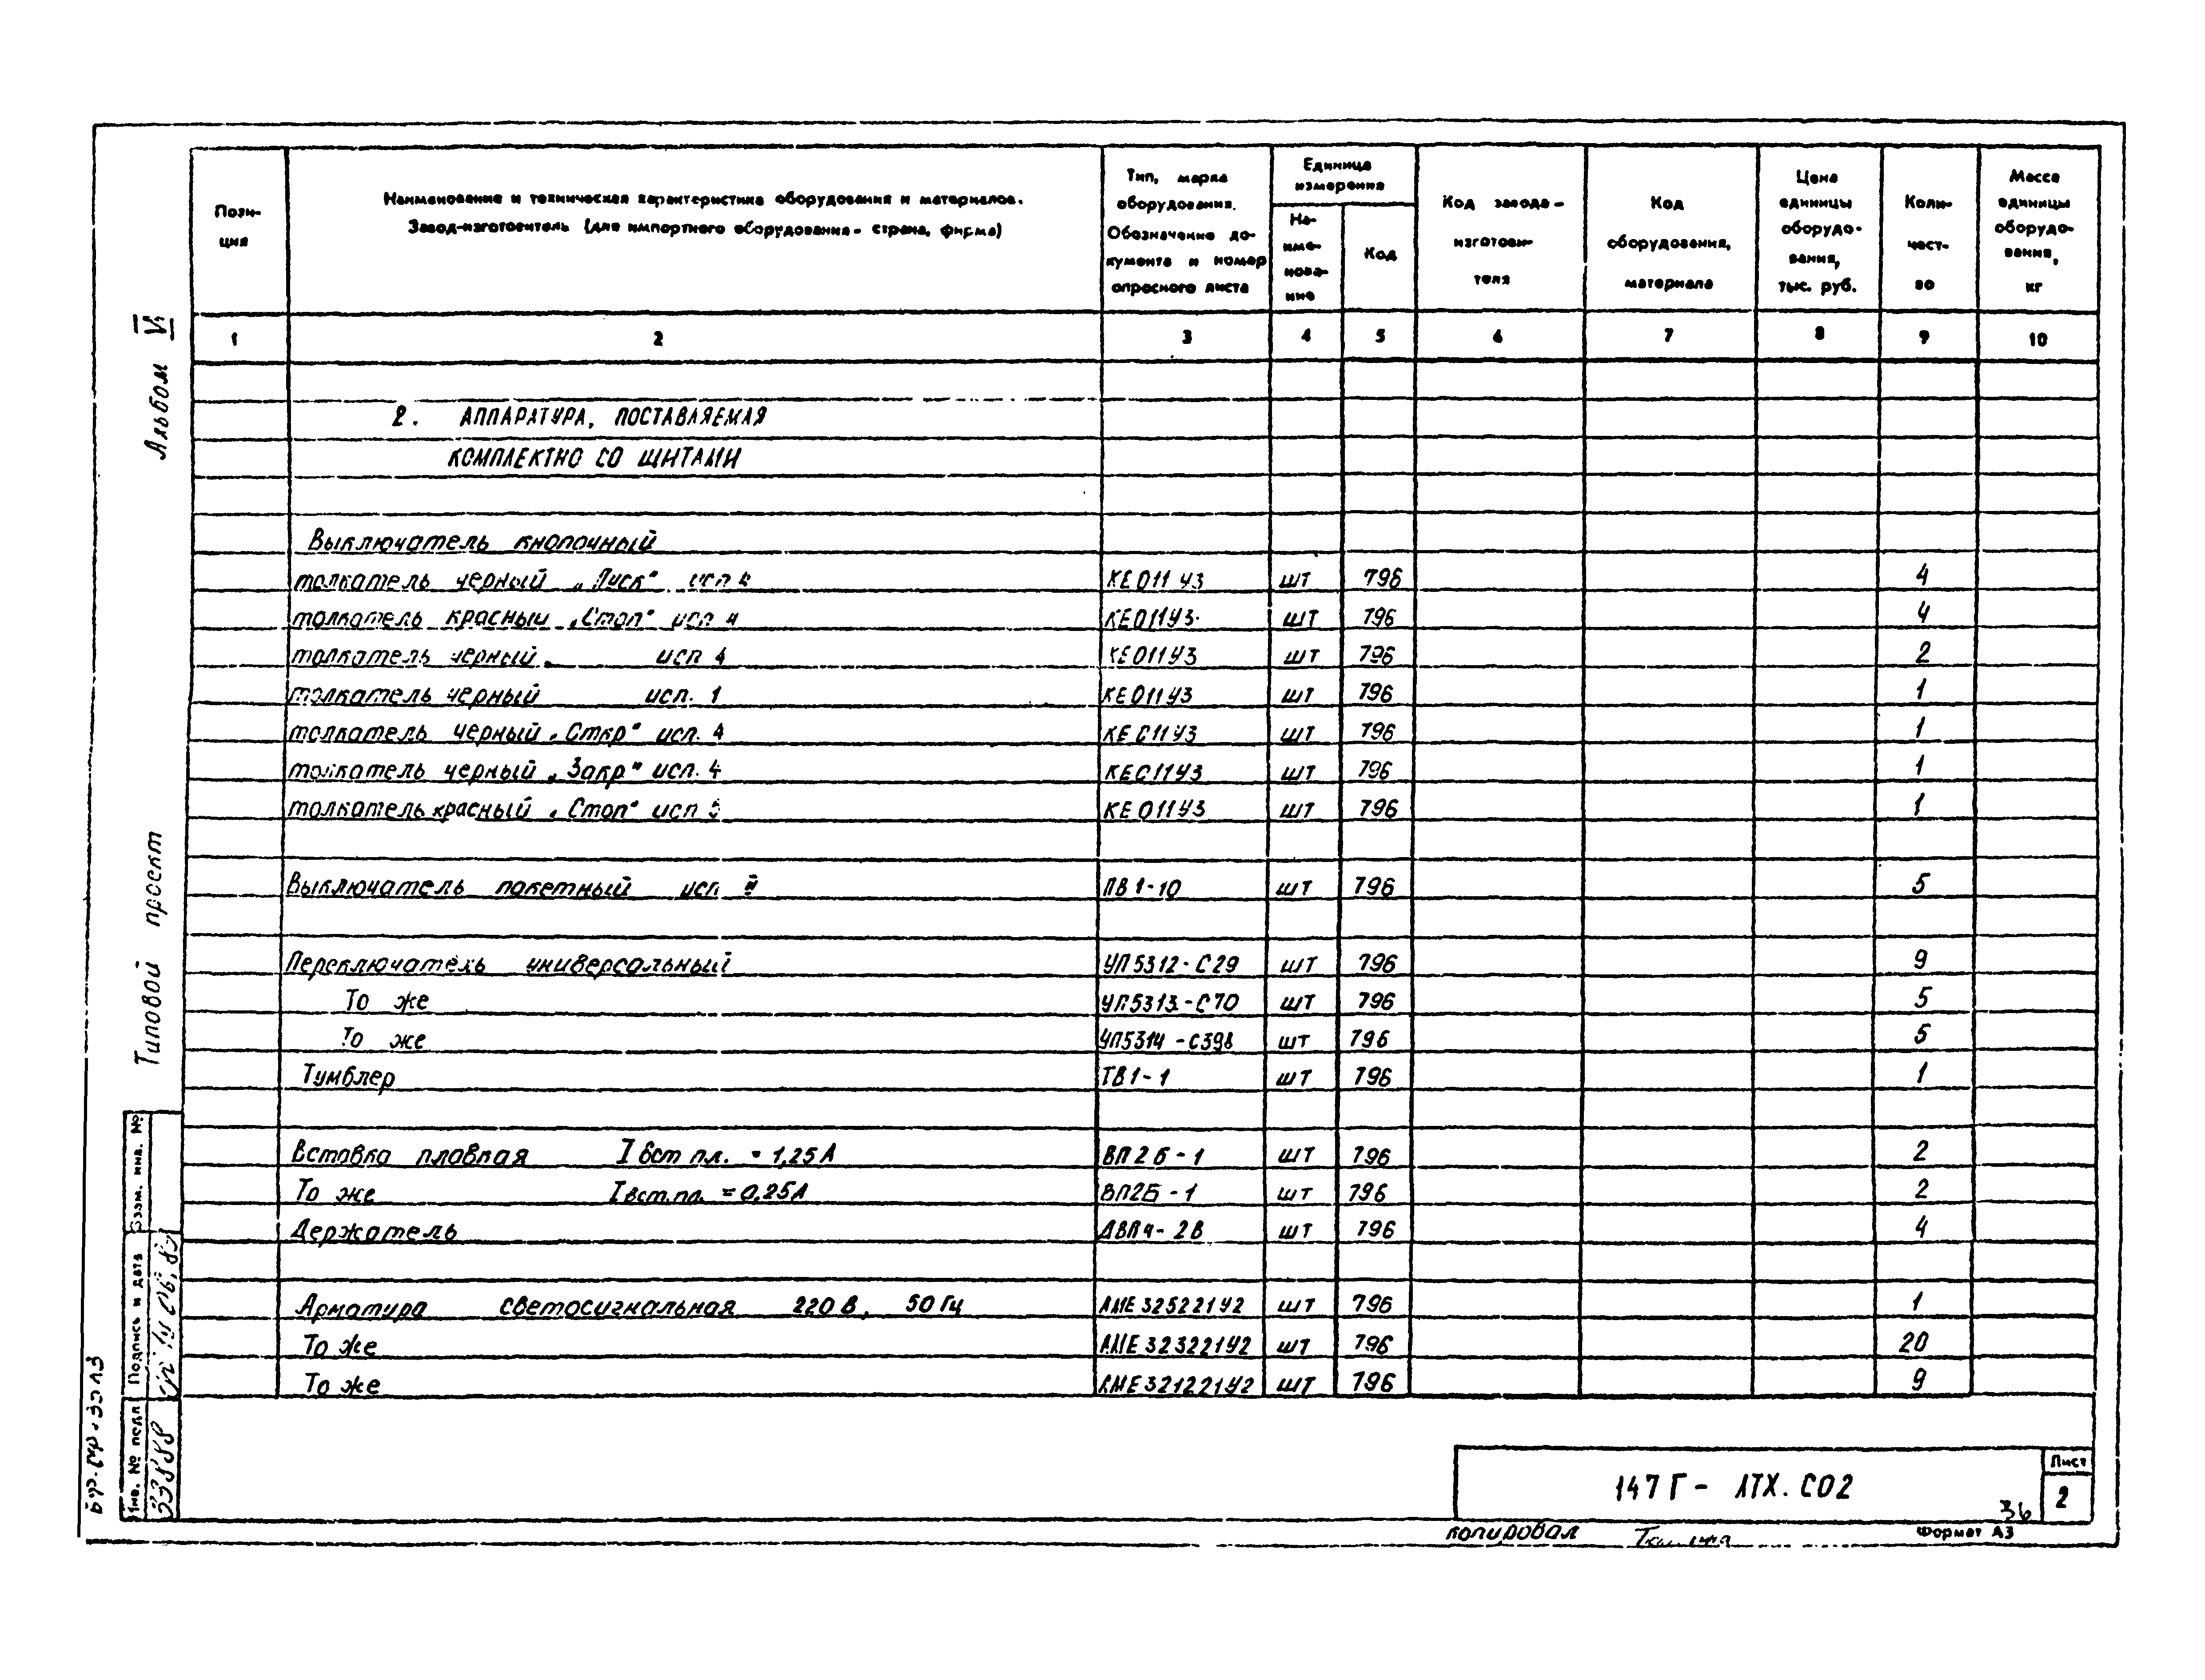 Пози-
ция
Наименование и техническая характеристика оборудования и материалов.
Завод-изготовитель (для импортного оборудования - страна, фирма)
Тип, марка
оборудования.
Обозначение до-
кумента и номер
опросного листа
Единица
измерения
На-
име-
нова-
ние
Код
Код завода-
изготови-
теля
Код
оборудования,
материала
Цена
единицы
оборудо-
вания,
тыс. руб.
Коли-
чест-
во
Масса
единицы
оборудо-
вания,
кг
1 2 3 4 5 6 7 8 9 10
2. АППАРАТУРА, ПОСТАВЛЯЕМАЯ
КОМПЛЕКТНО СО ЩИТАМИ
Выключатель кнопочный
толкатель черный „Пуск" исп 4 КЕ011У3 шт 796 4
толкатель красный „Стоп" исп 4 КЕ011У3 шт 796 4
толкатель черный исп 4 КЕ011У3 шт 796 2
толкатель черный исп. 1 КЕ011У3 шт 796 1
толкатель черный „Откр" исп. 4 КЕ011У3 шт 796 1
толкатель черный „Закр" исп. 4 КЕ011У3 шт 796 1
толкатель красный „Стоп" исп 5 КЕ011У3 шт 796 1
Выключатель пакетный исп ПВ1-10 шт 796 5
Переключатель универсальный УП5312-С29 шт 796 9
То же УП5313-С70 шт 796 5
То же УП5314-С398 шт 796 5
Тумблер ТВ1-1 шт 796 1
Вставка плавкая I вст пл. = 1,25А ВП2Б-1 шт 796 2
То же I вст.пл. = 0,25А ВП2Б-1 шт 796 2
Держатель ДВП4-2В шт 796 4
Арматура светосигнальная 220В, 50Гц АМЕ325221У2 шт 796 1
То же АМЕ323221У2 шт 796 20
То же АМЕ321221У2 шт 796 9
147Г - АТХ.СО2
Лист
2
36
Копировал
Формат А3
Альбом VI
Типовой проект
Взам. инв. №
Подпись и дата
Инв. № подл